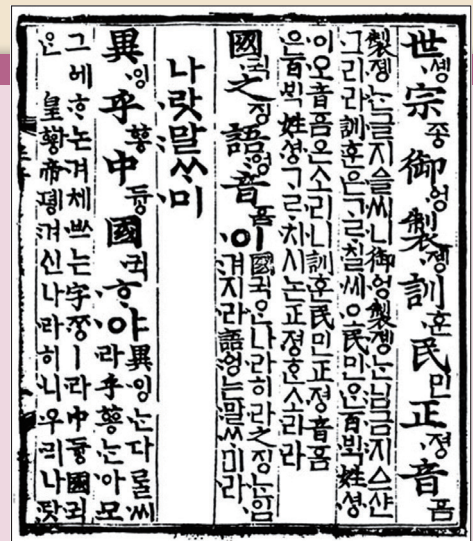 世솅宗종御ᅌᅥᆼ製졩訓훈民민正졍音ᅙᅳᆷ
製졩ᄂᆞᆫ글지ᅀᅳᆯ씨니御ᅌᅥᆼ製졩ᄂᆞᆫ님금지ᅀᅳ샨
그리라訓훈은ᄀᆞᄅᆞ칠씨오民민ᄋᆞᆫ百ᄇᆡᆨ姓셩
이오音ᅙᅳᆷ은소리니訓훈民민正졍音ᅙᅳᆷ
은百ᄇᆡᆨ姓셩ᄀᆞᄅᆞ치시논正졍ᄒᆞᆫ소리라
國귁之징語ᅌᅥᆼ音ᅙᅳᆷ이國귁ᄋᆞᆫ나라히라之징ᄂᆞᆫ입
겨지라語ᅌᅥᆼᄂᆞᆫ말ᄊᆞ미라
나랏말ᄊᆞ미
異잉乎ᅘᅩᆼ中듕國귁ᄒᆞ야異잉ᄂᆞᆫ다ᄅᆞᆯ씨
라乎ᅘᅩᆼᄂᆞᆫ아모
그ᅌᅦᄒᆞ논겨체ᄡᅳᄂᆞᆫ字ᄍᆞᆼㅣ라中듕國귁
ᄋᆞᆫ 皇황帝뎽겨신나라히니우리나랏